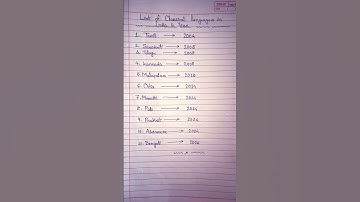 List of Classical languages in
India & Year
1. Tamil → 2004
2. Sanskrit → 2005
3. Telugu → 2008
4. Kannada → 2008
5. Malayalam → 2013
6. Odia → 2014
7. Marathi → 2024
8. Pali → 2024
9. Prakrit → 2024
10. Assamese → 2024
11. Bengali → 2024